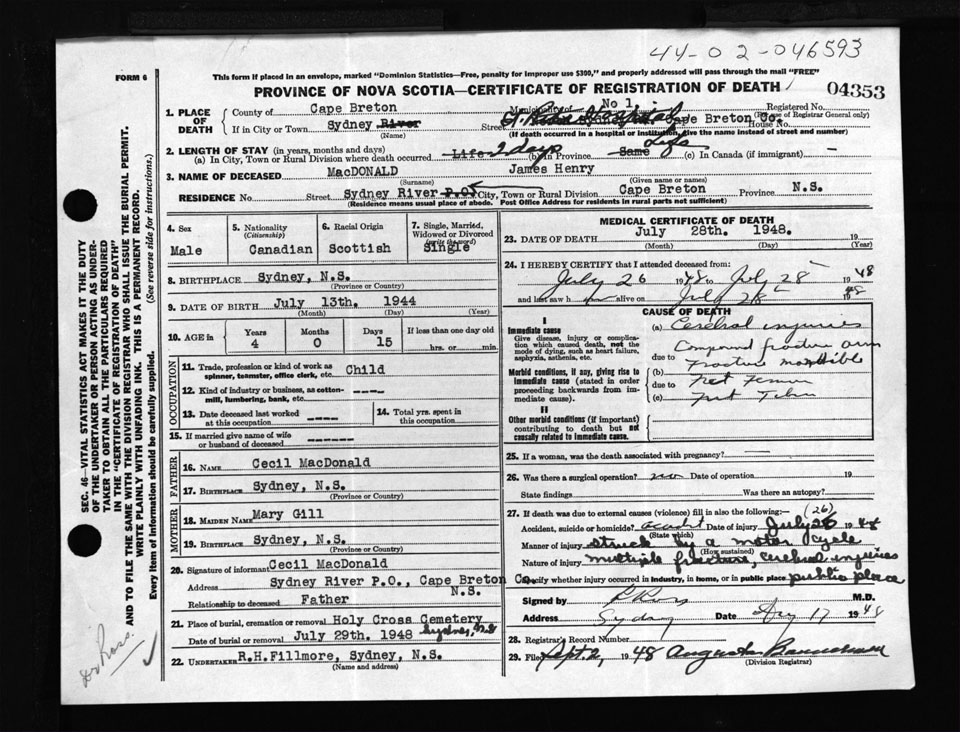 44-02-046593
FORM 6
This form if placed in an envelope, marked "Dominion Statistics—Free, penalty for improper use $300," and properly addressed will pass through the mail "FREE"
PROVINCE OF NOVA SCOTIA—CERTIFICATE OF REGISTRATION OF DEATH
04353
1. PLACE OF DEATH
County of Cape Breton Municipality of No 1 Registered No.
(For use of Registrar General only)
If in City or Town Sydney River Street Hospital Cape Breton Co. House No.
(Name) (If death occurred in a hospital or institution, give the name instead of street and number)
2. LENGTH OF STAY (in years, months and days)
(a) In City, Town or Rural Division where death occurred Life 2 days (b) in Province Same Life (c) In Canada (if immigrant) —
3. NAME OF DECEASED MacDONALD James Henry
(Surname) (Given name or names)
RESIDENCE No Street Sydney River P.O. City, Town or Rural Division Cape Breton Province N.S.
(Residence means usual place of abode. Post Office Address for residents in rural parts not sufficient)
4. Sex
Male
5. Nationality
(Citizenship)
Canadian
6. Racial Origin
Scottish
7. Single, Married, Widowed or Divorced
(write the word)
Single
8. BIRTHPLACE Sydney, N.S.
(Province or Country)
9. DATE OF BIRTH July 13th. 1944
(Month) (Day) (Year)
10. AGE in
Years Months Days If less than one day old
4 0 15 hrs. or min.
OCCUPATION
11. Trade, profession or kind of work as spinner, teamster, office clerk, etc. Child
12. Kind of industry or business, as cotton-mill, lumbering, bank, etc. ----
13. Date deceased last worked at this occupation ----
14. Total yrs. spent in this occupation
15. If married give name of wife or husband of deceased ------
FATHER
16. NAME Cecil MacDonald
17. BIRTHPLACE Sydney, N.S.
(Province or Country)
MOTHER
18. MAIDEN NAME Mary Gill
19. BIRTHPLACE Sydney, N.S.
(Province or Country)
20. Signature of informant Cecil MacDonald
Address Sydney River P.O., Cape Breton Co.
N.S.
Relationship to deceased Father
21. Place of burial, cremation or removal Holy Cross Cemetery
Date of burial or removal July 29th. 1948 Sydney, N.S
22. UNDERTAKER R.H.Fillmore, Sydney, N.S.
(Name and address)
MEDICAL CERTIFICATE OF DEATH
23. DATE OF DEATH July 28th. 1948. 19
(Month) (Day) (Year)
24. I HEREBY CERTIFY that I attended deceased from:
July 26 1948 to July 28 1948
and last saw him alive on July 28 1948
CAUSE OF DEATH
I
Immediate cause
Give disease, injury or complication which caused death, not the mode of dying, such as heart failure, asphyxia, asthenia, etc.
(a) Cerebral injuries
Compound fracture arm
due to Fracture mandible
Morbid conditions, if any, giving rise to immediate cause (stated in order proceeding backwards from immediate cause).
(b)
due to Fract Femur
(c) Fract
II
Other morbid conditions (if important) contributing to death but not causally related to immediate cause.
25. If a woman, was the death associated with pregnancy? —
26. Was there a surgical operation? no Date of operation 19
State findings Was there an autopsy?
27. If death was due to external causes (violence) fill in also the following:—
(26)
Accident, suicide or homicide? accident Date of injury July 26 1948
(State which)
Manner of injury struck by a motor cycle
(How sustained)
Nature of injury multiple fracture, cerebral injuries
Specify whether injury occurred in industry, in home, or in public place public place
Signed by Ross M.D.
Address Sydney Date Aug 17 1948
28. Registrar's Record Number
29. Filed Sept. 2, 1948
(Division Registrar)
SEC. 46—VITAL STATISTICS ACT MAKES IT THE DUTY
OF THE UNDERTAKER OR PERSON ACTING AS UNDER-
TAKER TO OBTAIN ALL THE PARTICULARS REQUIRED
IN THE "CERTIFICATE OF REGISTRATION OF DEATH"
AND TO FILE THE SAME WITH THE DIVISION REGISTRAR WHO SHALL ISSUE THE BURIAL PERMIT.
WRITE PLAINLY WITH UNFADING INK. THIS IS A PERMANENT RECORD.
Every item of information should be carefully supplied. (See reverse side for instructions.)
Dr Ross.